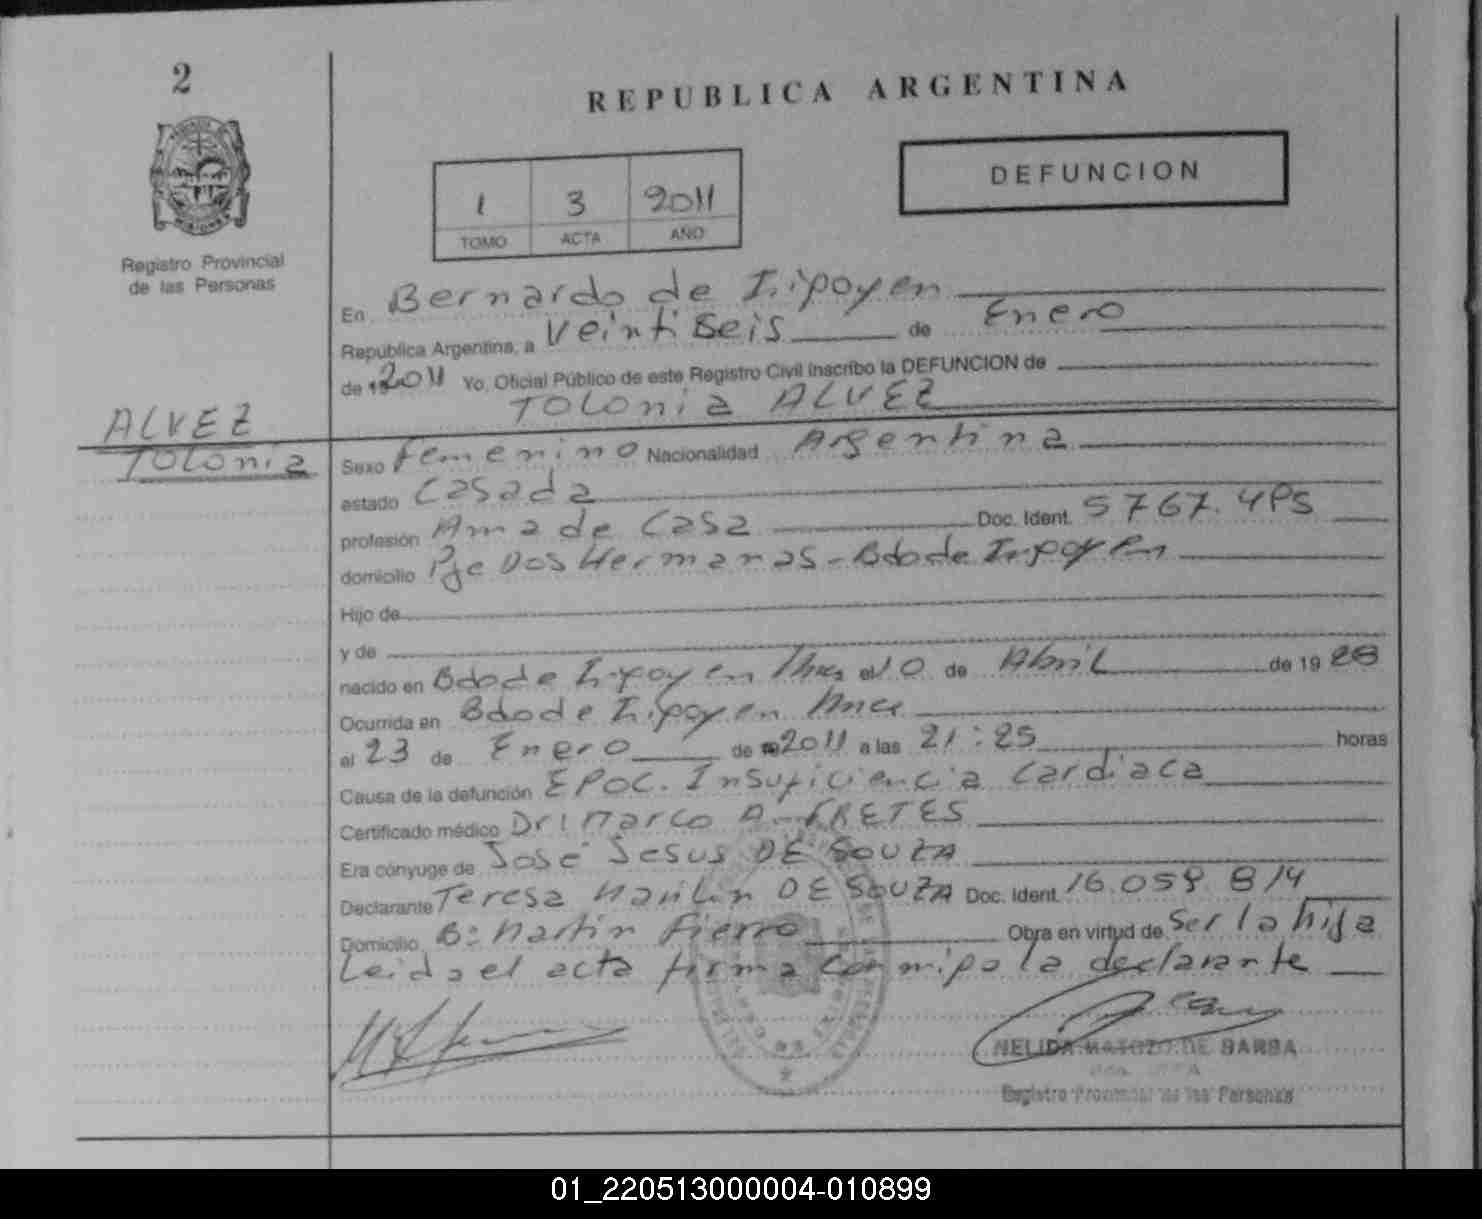 2
REPUBLICA ARGENTINA
DEFUNCION
1 3 2011
TOMO ACTA AÑO
Registro Provincial
de las Personas
En Bernardo de Irigoyen
República Argentina, a veintiseis de Enero
de 2011 Yo, Oficial Público de este Registro Civil inscribo la DEFUNCION de
TOLONIA ALVEZ
ALVEZ
Tolonia
Sexo Femenino Nacionalidad Argentina
estado Casada
profesión Ama de Casa Doc. Ident. 5767.
domicilio Pje Dos Hermanas - Bdo de Irigoyen
Hijo de
y de
nacido en Bdo de Irigoyen Mnes el 10 de Abril de 19 28
Ocurrida en Bdo de Irigoyen Mnes
el 23 de Enero de 2011 a las 21:25 horas
Causa de la defunción EPOC. Insuficiencia Cardiaca
Certificado médico Dr: Marco A. FRETES
Era cónyuge de José Jesus DE SOUZA
Declarante Teresa DE SOUZA Doc. Ident. 16.059.814
Domicilio Bº Martin Fierro Obra en virtud de Ser la hija
Leida el acta firma conmigo la declarante
NELIDA MATOZO DE BARBA
Registro Provincial de las Personas
01_220513000004-010899